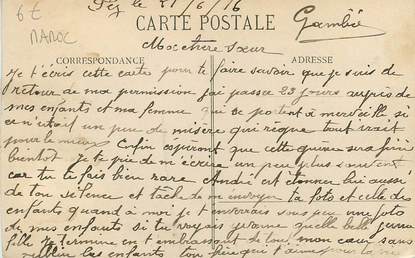 6€
MAROC
Fez le 21/6/16
CARTE POSTALE
Ma chere sœur
CORRESPONDANCE
ADRESSE
Je t'écris cette carte pour te faire savoir que je suis de
retour de ma permission j'ai passer 23 jours auprès de
mes enfants et ma femme qui ce portent à merveille si
ce n'étrait un peu de misère qui règne tout irait
pour le mieux Enfin espéront que cette guerre sera fini
bientot. Je te prie de m'écrire un peu plus souvent
car tu le fais bien rare André est étonner lui aussi
de ton silence et tâche de m'envoyer ta foto et celle des
enfants quand à moi je t'enverrais sous peu une foto
de mes enfants si tu voyais quelle belle
fille Je termine en t'embrassant de tou mon cœur sans
les enfants ton qui t'aime pour la vie